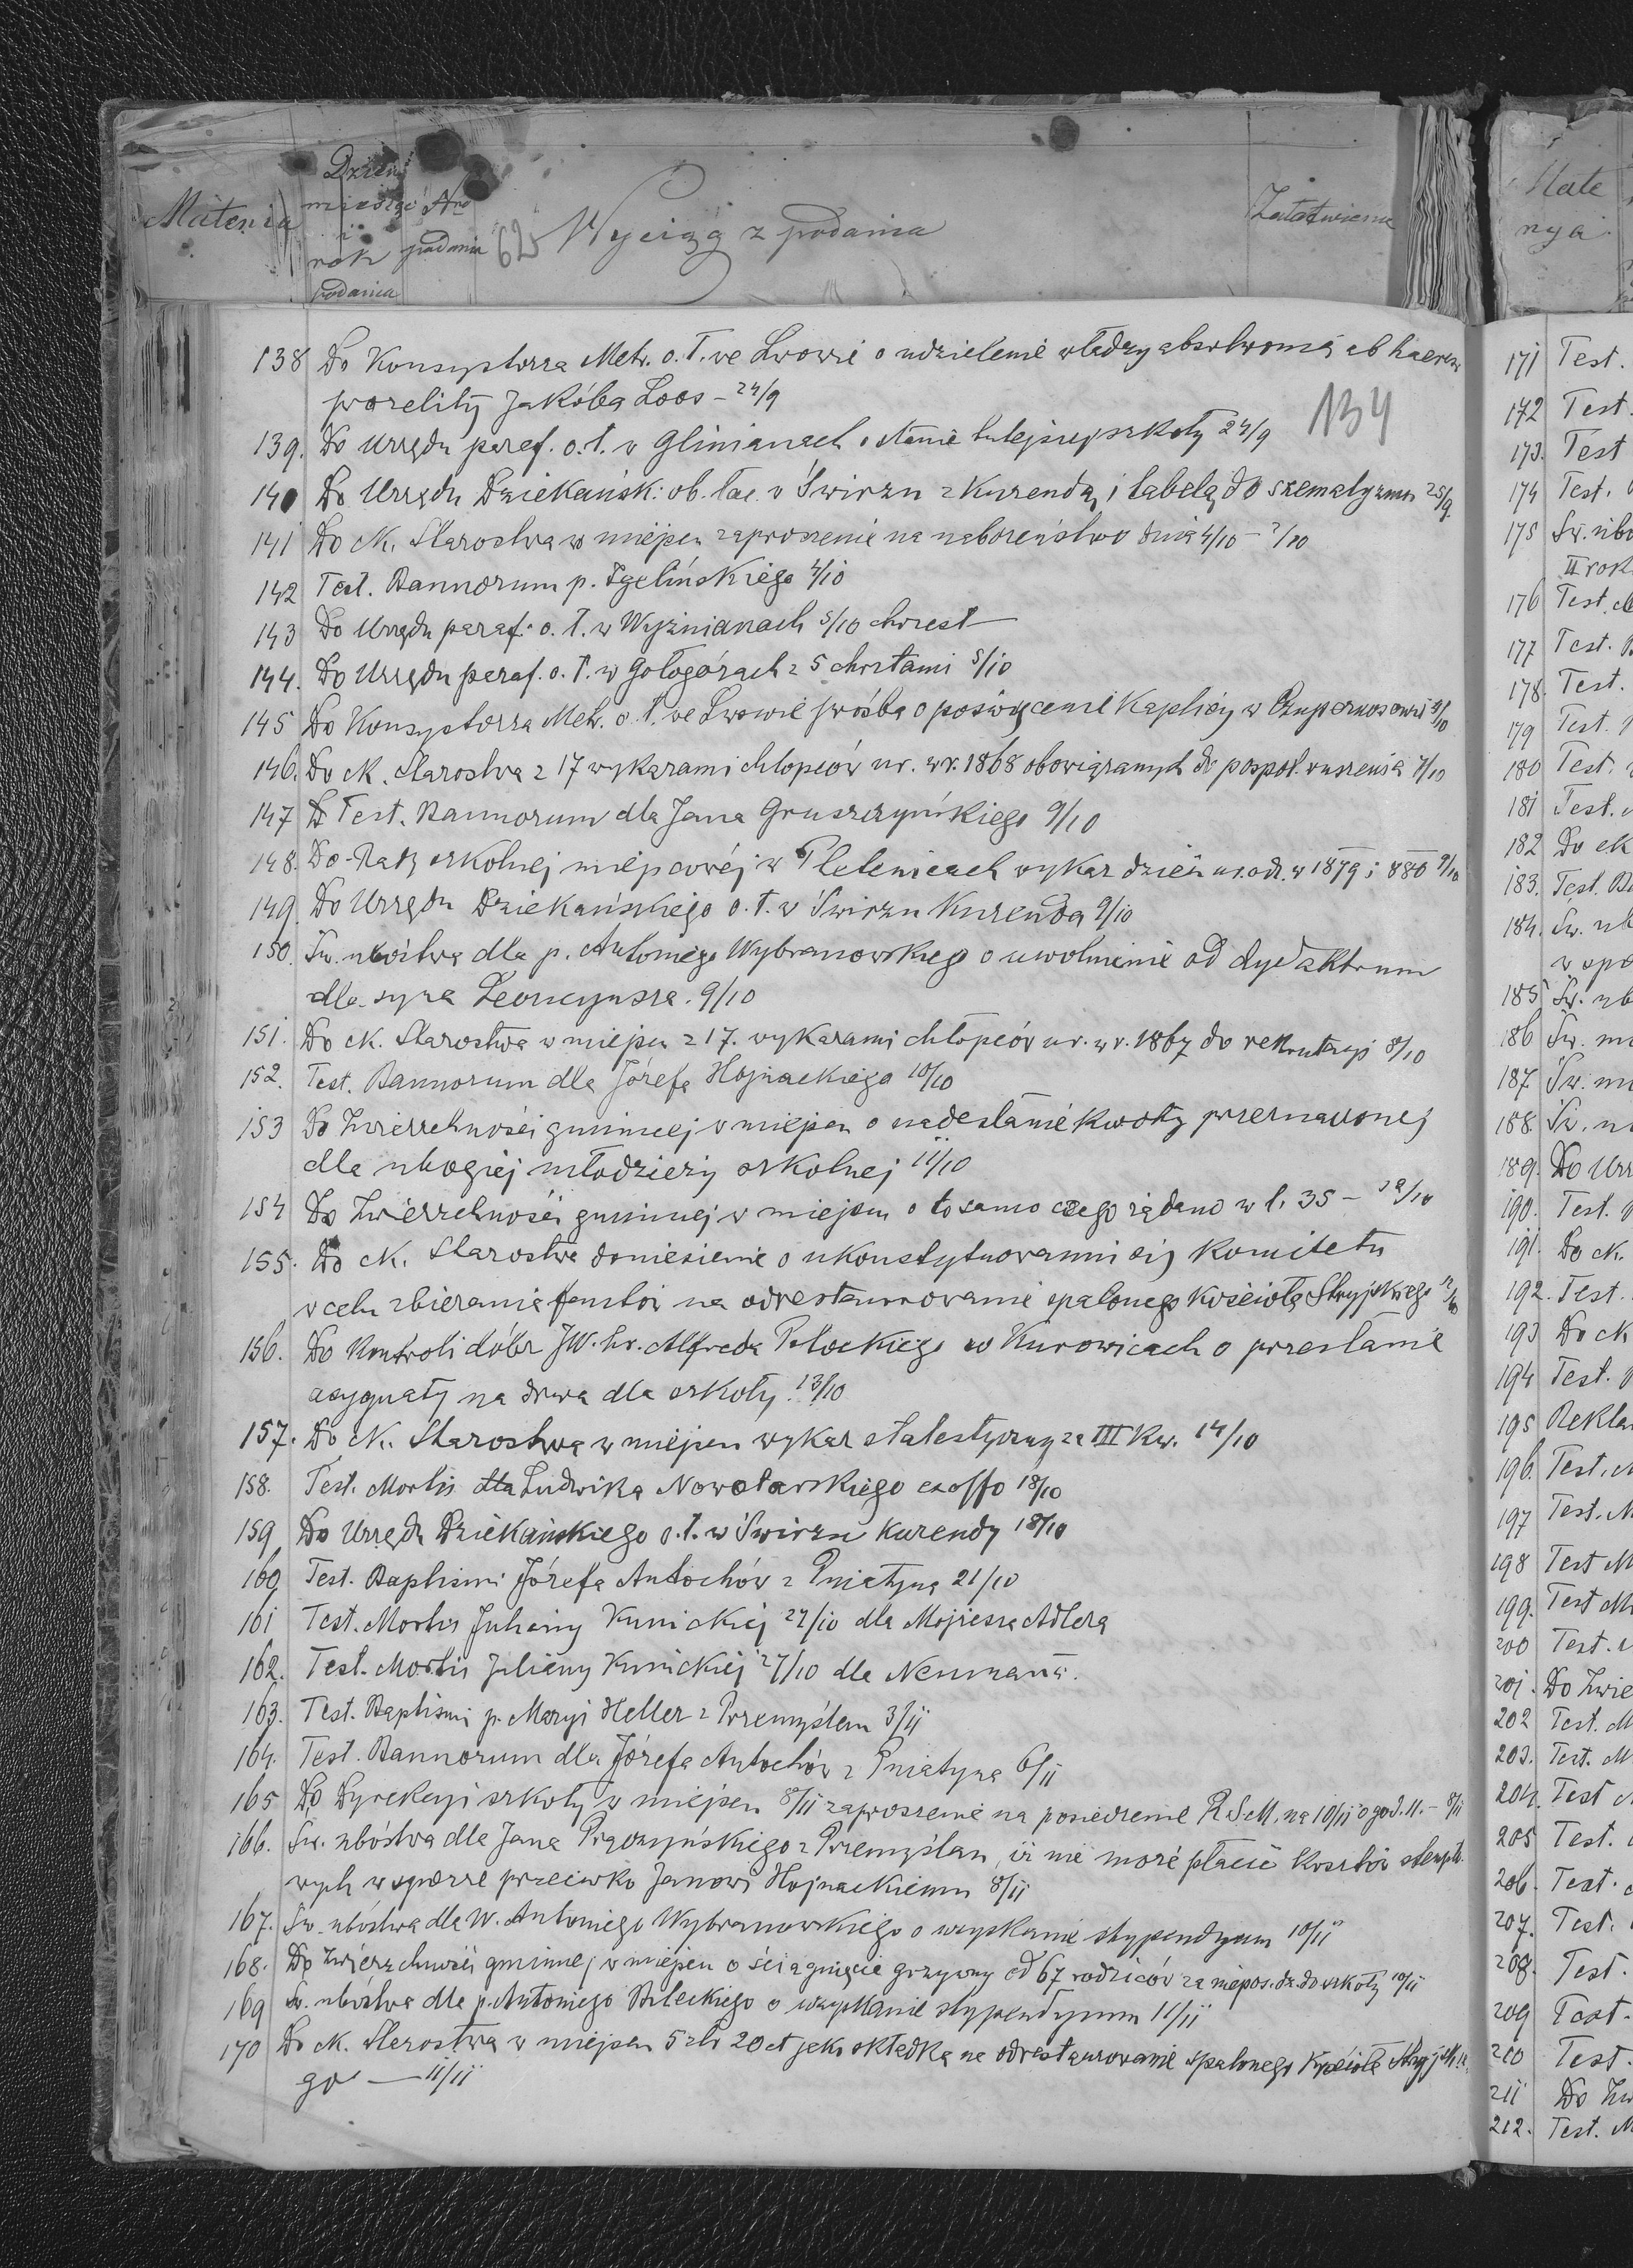 Materia
Dzień
miesiąc
i
rok
podania
Nro
podania
62
Wyciąg z podania
Załatwienie
134
138 Do Konsystorza Metr. o. ł. we Lwowie o udzielenie władzy absolwowania ab haeresi
prozelity Jakóba Loos – 24/9
139. Do Urzędu paraf. o. ł. w Glinianach o stanie tutejszej szkoły 24/9
140 Do Urzędu Dziekańsk: ob. łac. w Świrzu z Kurendą i tabelą do szematyzmu 25/9
141 Do ck. Starostwa w miejscu zaproszenie na nabożeństwo dnia 4/10 – 2/10
142 Test. Bannorum p. Igelińskiego 4/10
143 Do Urzędu paraf. o. ł. w Wyżnianach 5/10 chrzest
144. Do Urzędu paraf. o. ł. w Gołogórach z 5 chrztami 5/10
145 Do Konsystorza Metr. o. ł. we Lwowie prośba o poświęcenie Kaplicy w
146. Do ck. Starostwa z 17 wykazami chłopców ur. w r. 1868 obowiązanych do pospol. ruszenia 7/10
147 Test. Bannorum dla Jana Gruszczyńskiego 9/10
148. Do Rady szkolnej miejscowéj w Pletenicach wykaz dzieci ur. w 1879 i 880 9/10
149. Do Urzędu Dziekańskiego o. ł. w Świrzu Kurenda 9/10
150. Św. ubóstwa dla p. Antoniego Wybranowskiego o uwolnienie od dydaktrum
dla syna Leoncyusza. 9/10
151. Do ck. Starostwa w miejscu z 17. wykazami chłopców ur. w r. 1867 do rekrutacyi 8/10
152. Test. Bannorum dla Józefa Hojnackiego 10/10
153 Do Zwierzchności gminnej w miejscu o nadesłanie kwoty przeznaczonej
dla ubogiej młodzieży szkolnej 11/10
154 Do Zwierzchności gminnej w miejscu o to samo czego żądano w l. 35 – 12/10
155. Do ck. Starostwa doniesienie o ukonstytuowaniu się Komitetu
w celu zbierania fantów na odrestaurowanie spalonego kościoła Stryjskiego 12/10
156. Do Kontroli dóbr JW. hr. Alfreda Potockiego w Kurowicach o przesłanie
asygnaty na drwa dla szkoły 13/10
157. Do ck. Starostwa w miejscu wykaz statestyczny za III Kw. 14/10
158. Test. Mortis dla Ludwika Nowotarskiego exoffo 18/10
159 Do Urzędu Dziekańskiego o. ł. w Świrzu Kurendy 18/10
160 Test. Baptismi Józefa Antochów z Pniatyna 21/10
161 Test. Mortis Juliany Kunickiej 27/10 dla Mojżesza Adlera
162. Test. Mortis Juliany Kunickiej 27/10 dla Neumana.
163. Test. Baptismi p. Maryi Heller z Przemyślan 3/11
164. Test. Bannorum dla Józefa Antochów z Pniatyna 6/11
165 Do Dyrekcyi szkoły w miejscu 8/11 zaproszenie na posiedzenie R.S.M. na 10/11 o god. 11. – 8/11
166. Św. ubóstwa dla Jana Prączyńskiego z Przemyślan, iż nie może płacić kosztów stemplo-
wych w sporze przeciwko Janowi Hojnackiemu 8/11
167. Św. ubóstwa dla W. Antoniego Wybranowskiego o uzyskanie stypendyum 10/11
168. Do Zwierzchności gminnej w miejscu o ściągnięcie grzywny od 67 rodziców za niepos. dz. do szkoły 10/11
169 Św. ubóstwa dla p. Antoniego Bileckiego o uzyskanie stypendyum 11/11
170 Do ck. Starostwa w miejscu 5 złr 20 ct jako składka na odrestaurowanie spalonego Kościoła Stryjskie
go — 11/11
Mate
rya
171 Test.
172 Test.
173. Test
174 Test.
175 Św. ubó
II rok
176 Test.
177 Test.
178. Test.
179 Test.
180 Test.
181 Test.
182 Do ck
183. Test. Ba
184. Św. ub
w spo
185 Św. ub
186 Św. mo
187 Św.
188. Św.
189. Do Urz
190. Test.
191. Do ck.
192. Test.
193 Do ck
194 Test.
195 Rekla
196. Test. M
197 Test. M
198 Test M
199. Test M
200 Test.
201. Do Zwie
202 Test. M
203. Test. M
204. Test
205 Test.
206. Test.
207. Test.
208. Test.
209 Test.
210 Test.
211 Do Zw
212. Test. M